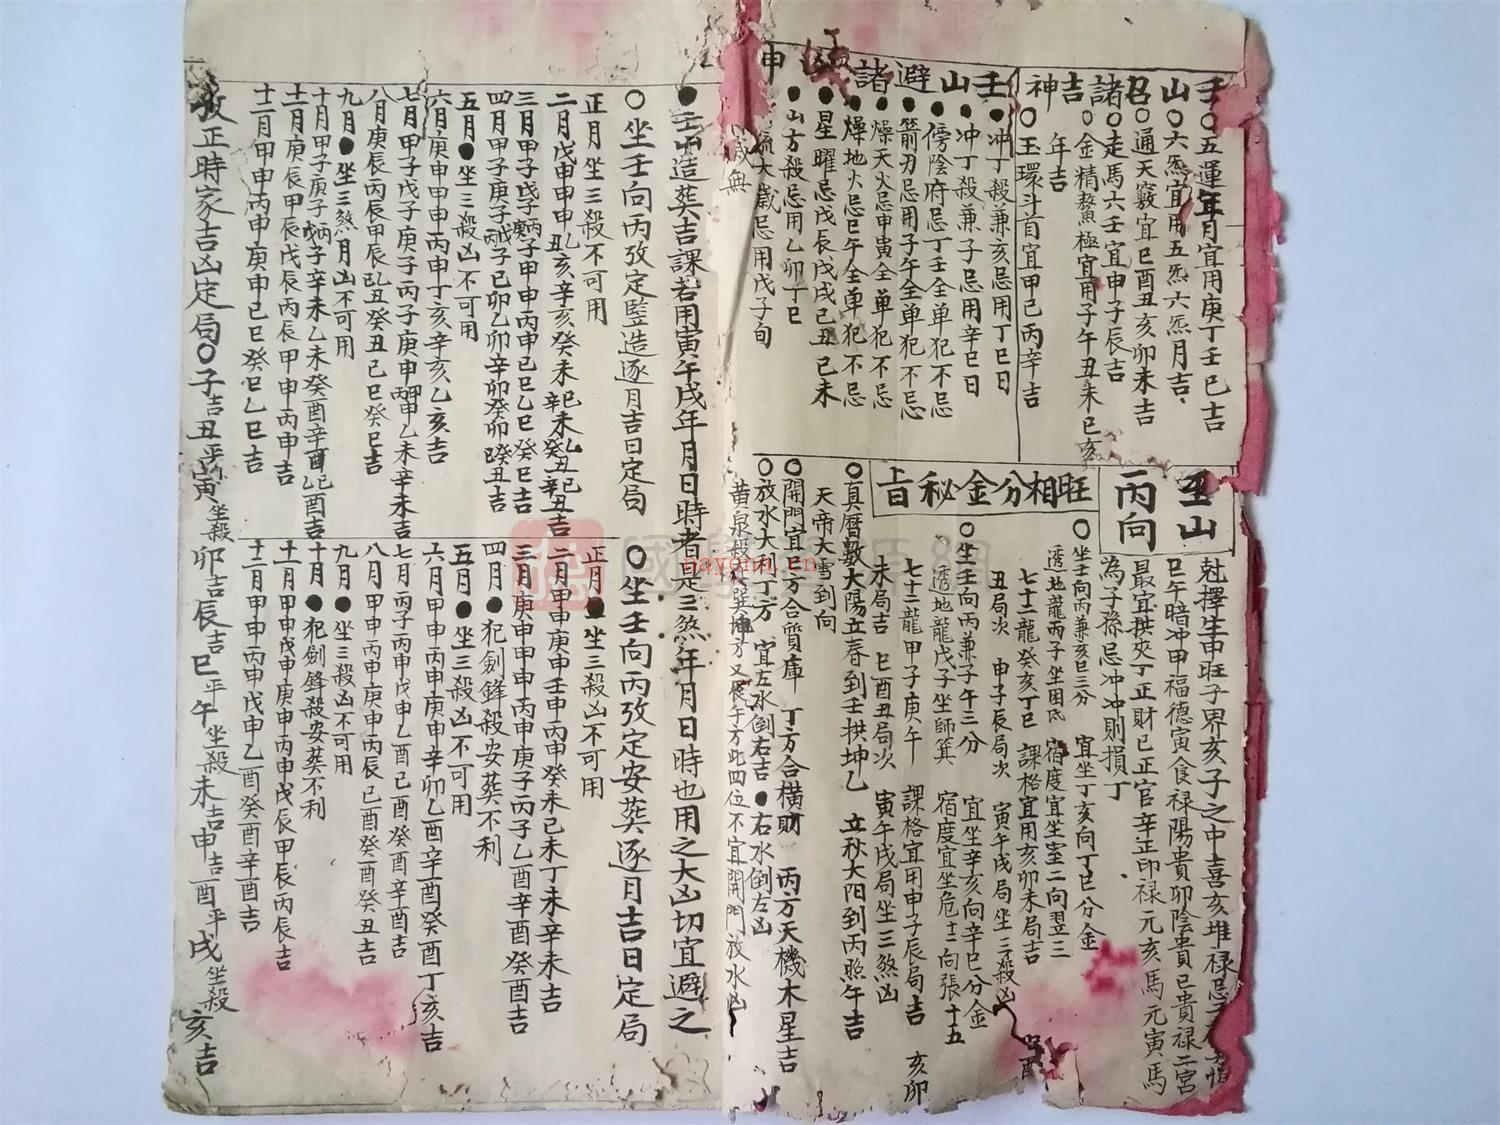 壬山召諸吉神
○五運年月宜用庚丁壬巳吉
○六炁宜用五炁六炁月吉
○通天竅宜巳酉丑亥卯未吉
○走馬六壬宜申子辰吉
○金精鰲極宜用子午丑未巳亥
年吉
○玉環斗首宜甲己丙辛吉
壬山避諸
申
●冲丁殺兼亥忌用丁巳日
●冲丁殺兼子忌用辛巳日
●傍陰府忌丁壬全單犯不忌
●箭刃忌用子午全單犯不忌
●燥天火忌申寅全單犯不忌
●燥地火忌巳午全單犯不忌
●星曜忌戊辰戊戌己丑己未
●山方殺忌用乙卯丁巳
太歲忌用戊子旬
歲無
壬山
丙向
尅擇生申旺子界亥子之中喜亥堆祿忌
巳午暗冲甲福德寅食祿陽貴卯陰貴巳貴祿二宮
最宜拱夾丁正財己正官辛正印祿元亥馬元寅馬
為子孫忌冲冲則損丁
旺相分金秘旨
○坐壬向丙兼亥巳三分 宜坐丁亥向丁巳分金
透地龍丙子坐困氐 宿度宜坐室二向翌三
七十二龍癸亥丁巳 課格宜用亥卯未局吉
丑局次 申子辰局次 寅午戌局坐三殺凶
○坐壬向丙兼子午三分 宜坐辛亥向辛巳分金
透地龍戊子坐師箕 宿度宜坐危十二向張十五
七十二龍甲子庚午 課格宜用申子辰局吉 亥卯
未局吉 巳酉丑局次 寅午戌局坐三煞凶
○真曆數太陽立春到壬拱坤乙 立秋大阳到丙照午吉
天帝大雪到向
○開門宜巳方合質庫 丁方合橫財 丙方天機木星吉
○放水大利丁方 宜左水倒右吉 ●右水倒左凶
黃泉殺 巽坤方又辰午方此四位不宜開門放水凶
●壬山造葬吉課若用寅午戌年月日時者是三煞年月日時也用之大凶切宜避之
○坐壬向丙攷定豎造逐月吉日定局
正月坐三殺不可用
二月戊申甲申乙亥辛亥癸未 辛巳 未 乙丑 癸丑 辛丑吉
三月甲子戊子庚子甲申丙申己巳乙巳癸巳吉
四月甲子庚子 己卯乙卯辛卯癸卯癸丑吉
五月●坐三殺凶不可用
六月庚申甲申丙申丁亥辛亥乙亥吉
七月甲子戊子庚子丙子庚申 乙未辛未吉
八月庚辰丙辰甲辰 癸丑己巳癸巳吉
九月●坐三煞月凶不可用
十月甲子庚子 辛未乙未癸酉辛酉 吉
十一月庚辰甲辰戊辰丙辰甲申丙申吉
十二月甲申丙申庚申己巳癸巳乙巳吉
○坐壬向丙攷定安葬逐月吉日定局
正月●坐三殺凶不可用
二月甲申庚申壬申丙申癸未己未丁未辛未吉
三月庚申甲申丙申庚子丙子乙酉辛酉癸酉吉
四月●犯劍鋒殺安葬不利
五月●坐三殺凶不可用
六月甲申丙申庚申辛卯乙酉辛酉癸酉丁亥吉
七月丙子丙申戊申乙酉己酉癸酉辛酉吉
八月甲申丙申庚申丙辰己酉癸酉癸丑吉
九月●坐三殺凶不可用
十月●犯劍鋒殺安葬不利
十一月甲申戊申庚申丙申戊辰甲辰丙辰吉
十二月甲申丙申戊申乙酉癸酉辛酉吉
攷正時家吉凶定局○子吉丑平寅坐殺卯吉辰吉巳平午坐殺未吉申吉酉平戌坐殺亥吉
nayona.cn